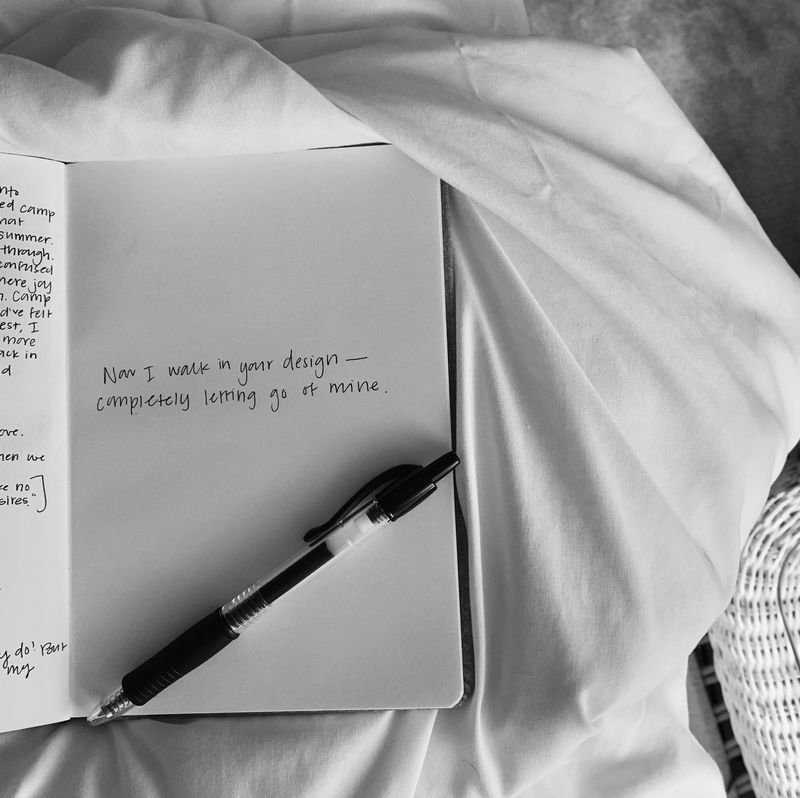 ed camp
summer.
through.
confused
here joy
. Camp
d've felt
est, I
more
ack in
d
ove.
hen we
no
sires."]
do! But
my
Now I walk in your design —
completely letting go of mine.